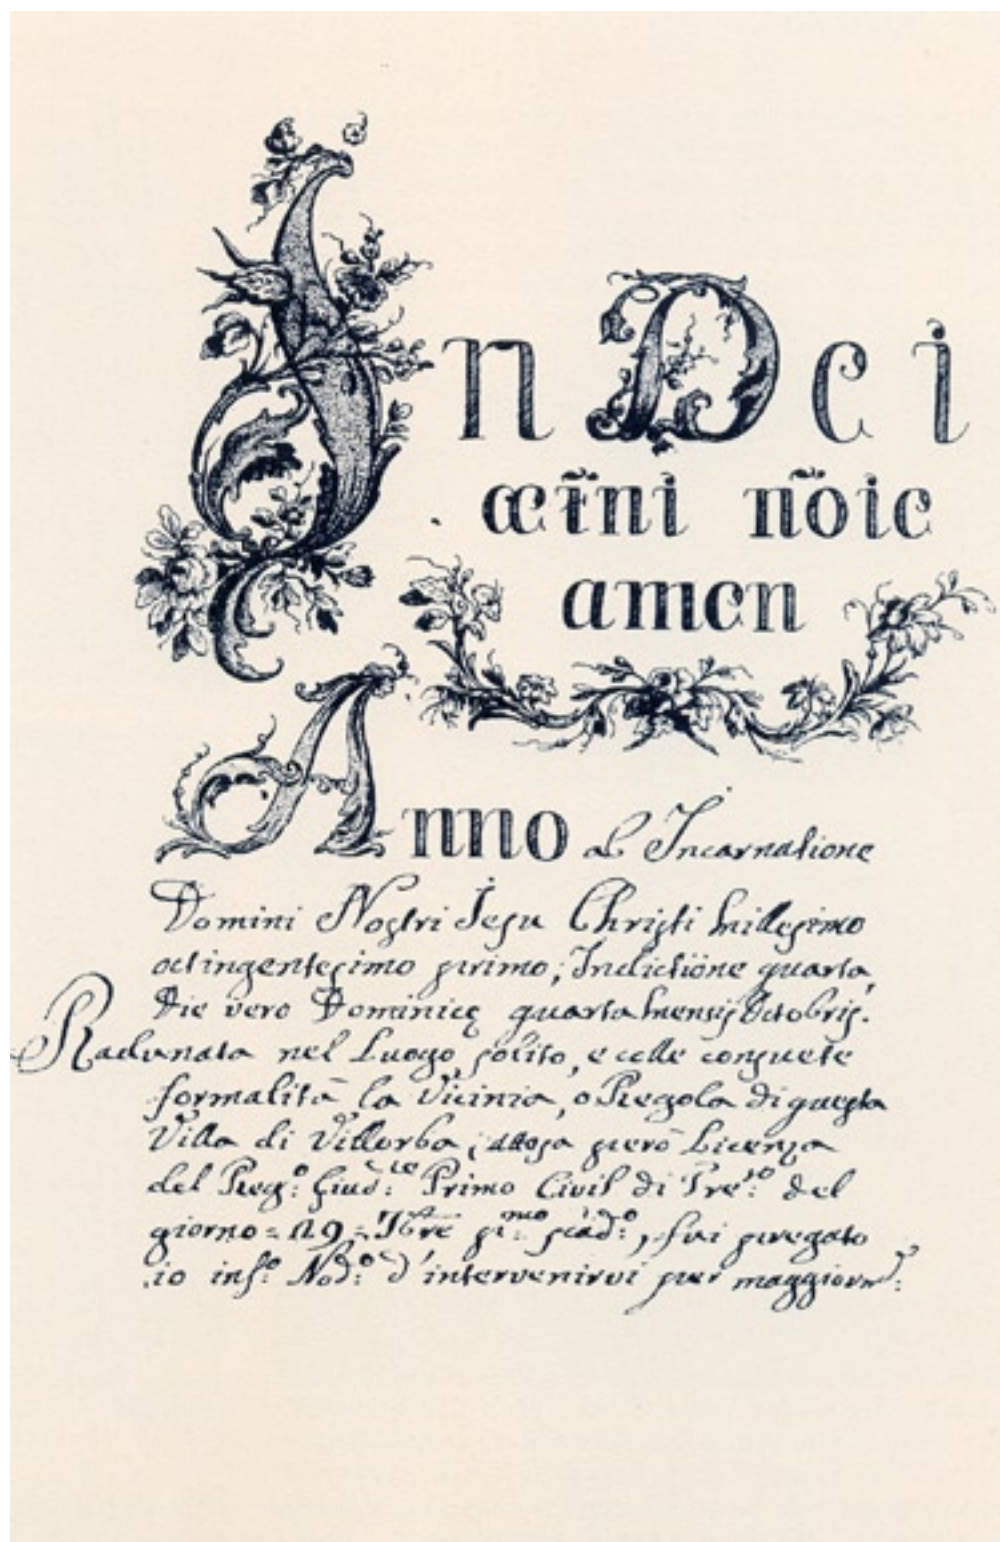 In Dei
æt̃ni nõie
amen
Anno ab Incarnatione
Domini Nostri Jesu Christi Millesimo
octingentesimo primo, Indictione quarta,
Die vero Dominicę quarta Mensis Octobris.
Radunata nel Luogo solito, e colle consuete
formalità la Vicinia, o Regola di questa
Villa di Villorba, attesa però Licenza
del Reg.º Giud.ce Primo Civil di Trev.º del
giorno = 29 = 7bre p.mo scad.º, fui pregato
io inf.º Nod.º d'intervenirvi per maggior